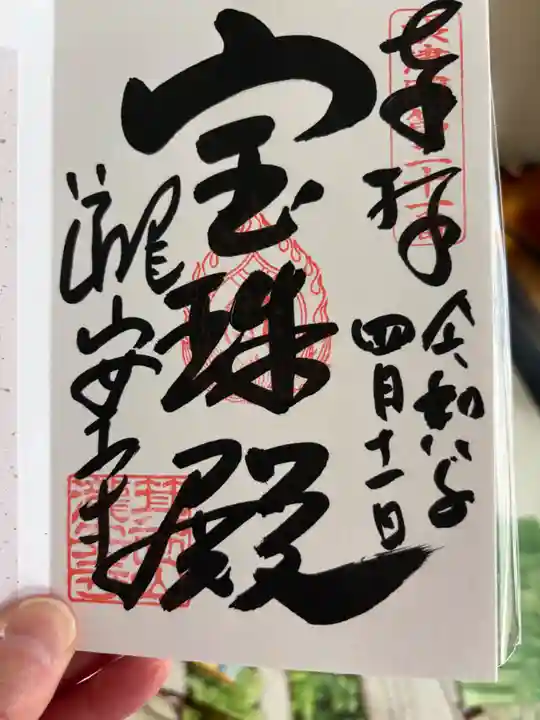 奉拝
令和八年
四月十一日
宝珠殿
瀧安寺